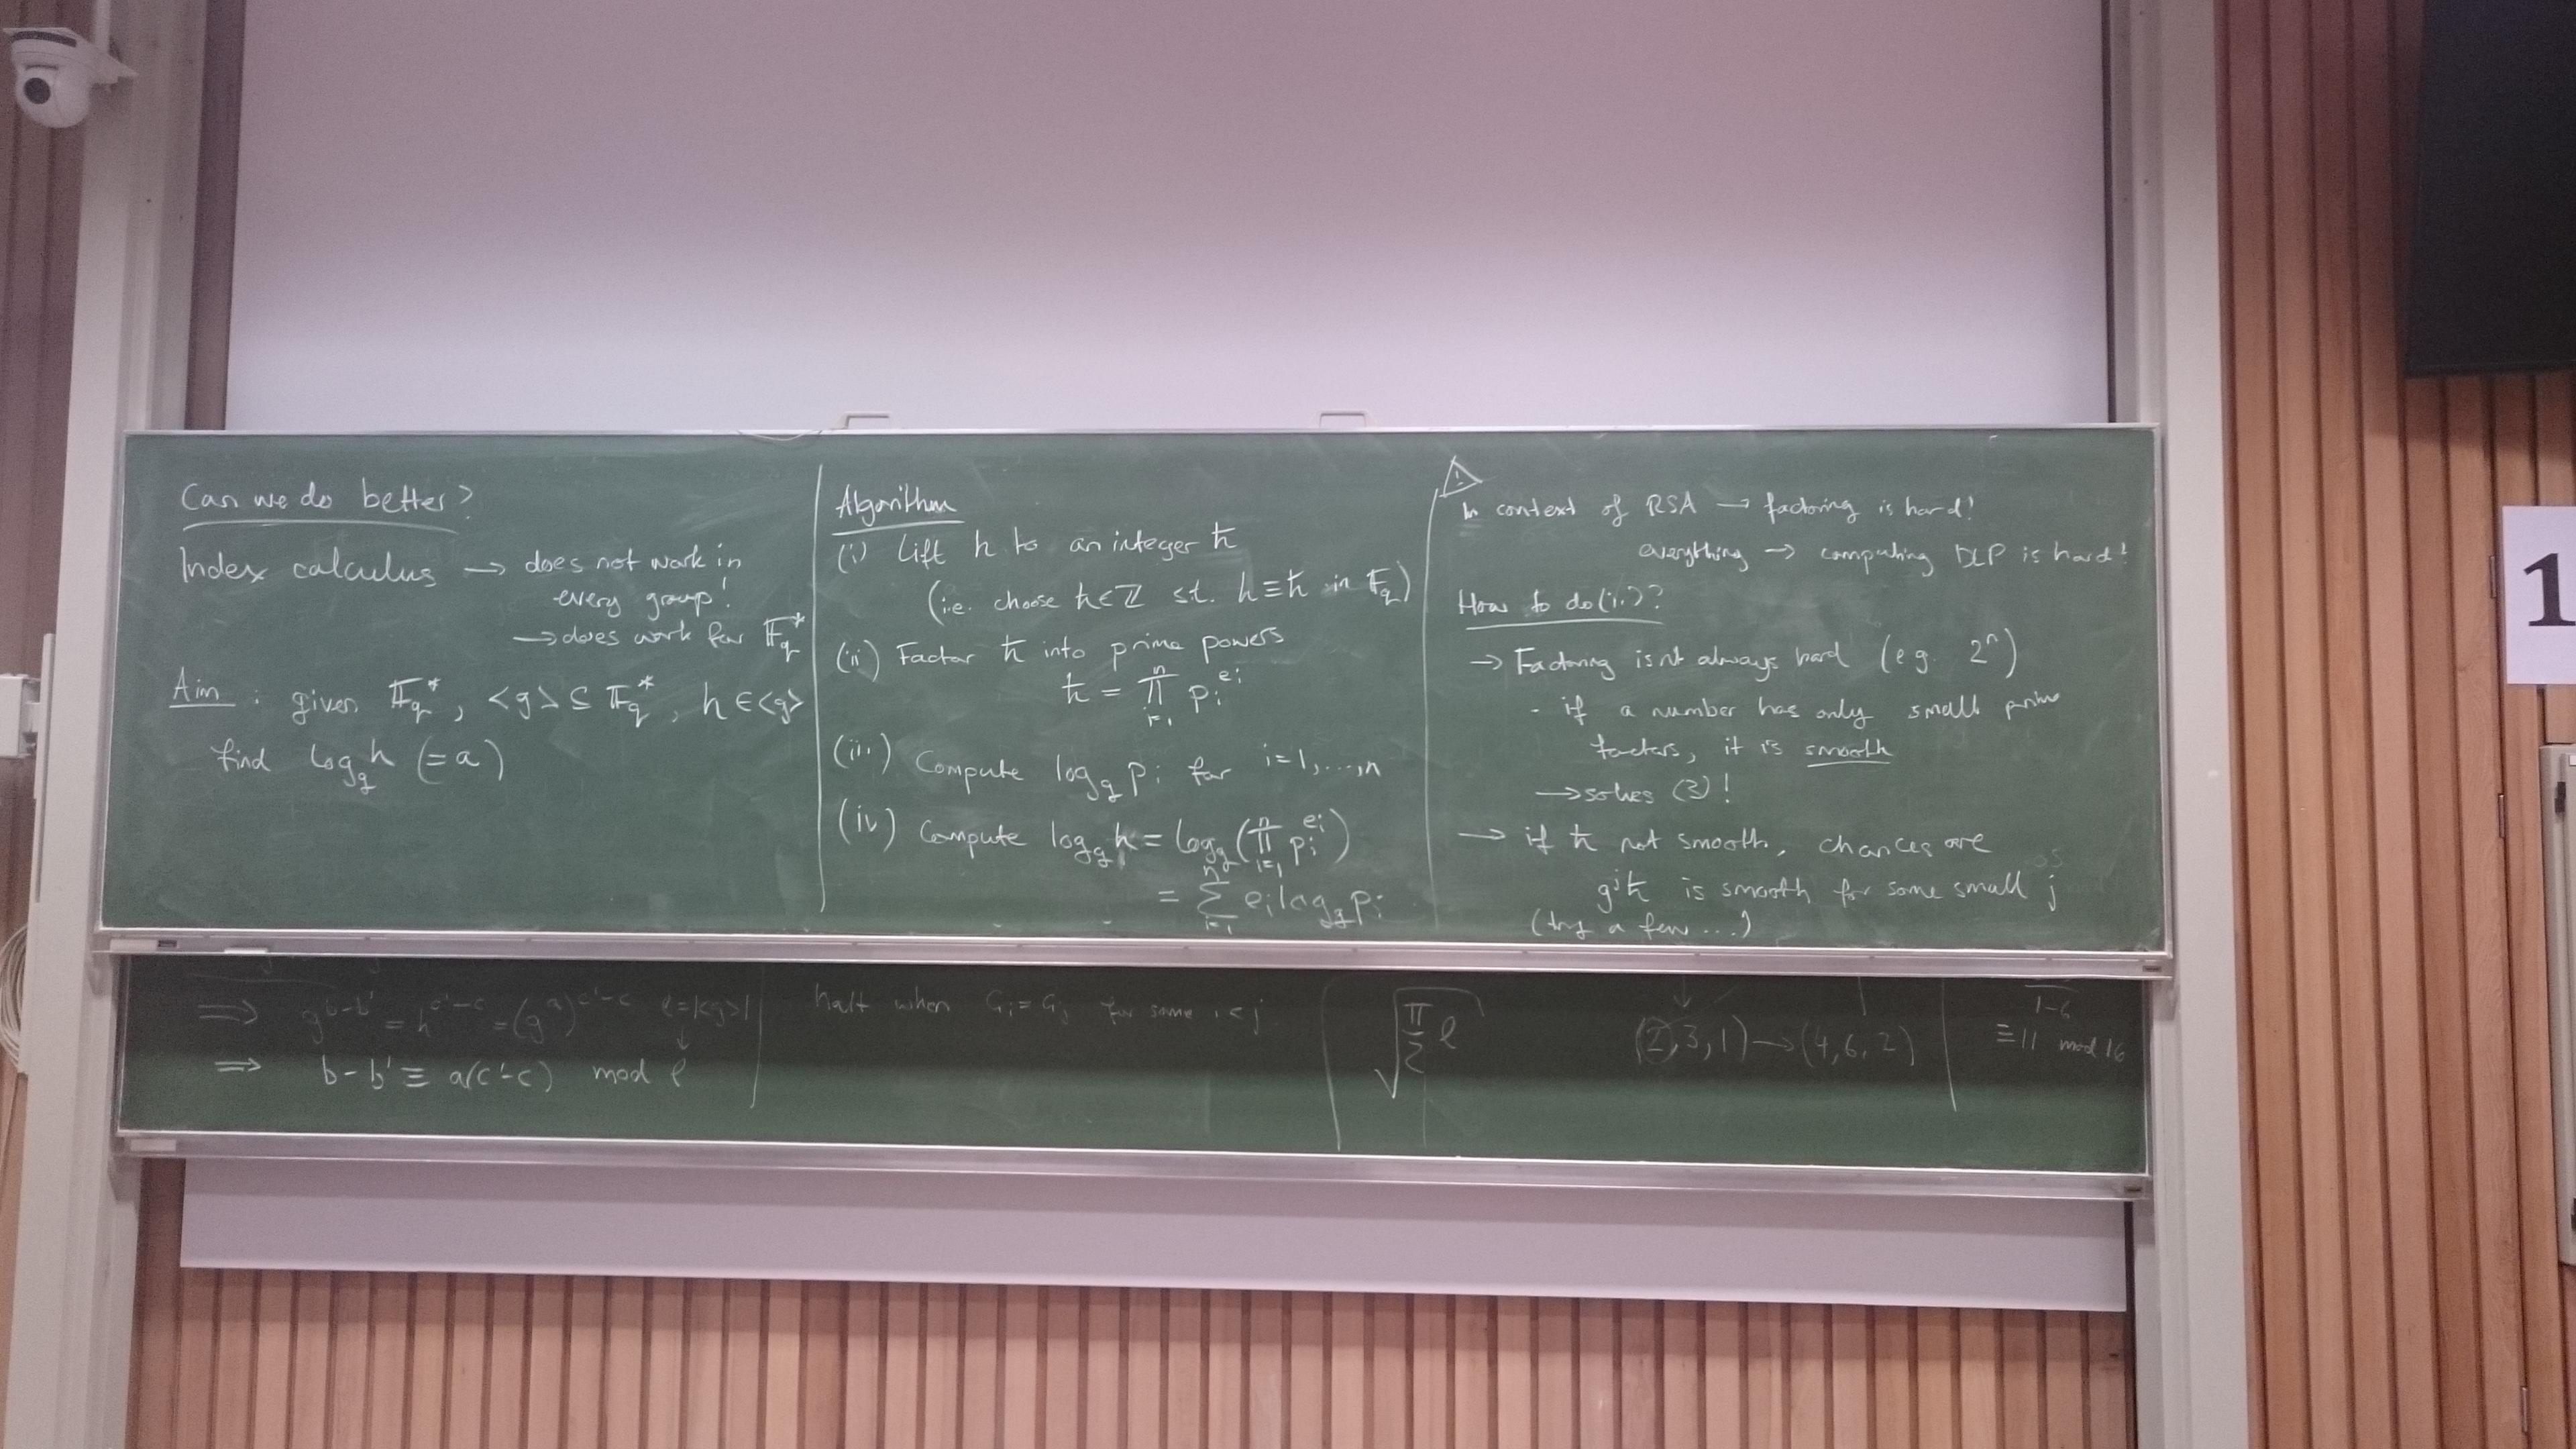 Can we do better?
Index calculus → does not work in
every group!
→ does work for 𝔽_q^*
Aim: given 𝔽_q^*, <g> ⊆ 𝔽_q^*, h ∈ <g>
find log_g h (= a)
Algorithm
(i) Lift h to an integer ħ
(i.e. choose ħ ∈ ℤ s.t. h ≡ ħ in 𝔽_q)
(ii) Factor ħ into prime powers
ħ = ∏_{i=1}^n p_i^{e_i}
(iii) Compute log_g p_i for i=1,...,n
(iv) Compute log_g h = log_g (∏_{i=1}^n p_i^{e_i})
= ∑_{i=1}^n e_i log_g p_i
⚠
In context of RSA → factoring is hard!
everything → computing DLP is hard!
How to do (ii)?
→ Factoring isn't always hard (e.g. 2^n)
- if a number has only small prime
factors, it is smooth
→ solves (3)!
→ if ħ not smooth, chances are
g^j ħ is smooth for some small j
(try a few ...)
⇒ g^{b-b'} = h^{c'-c} = (g^a)^{c'-c} ℓ=|<g>|
⇒ b-b' ≡ a(c'-c) mod ℓ
halt when G_i = G_j for some i < j
√(π/2 ℓ)
(2,3,1) → (4,6,2)
1-6
≡ 11 mod 16
1